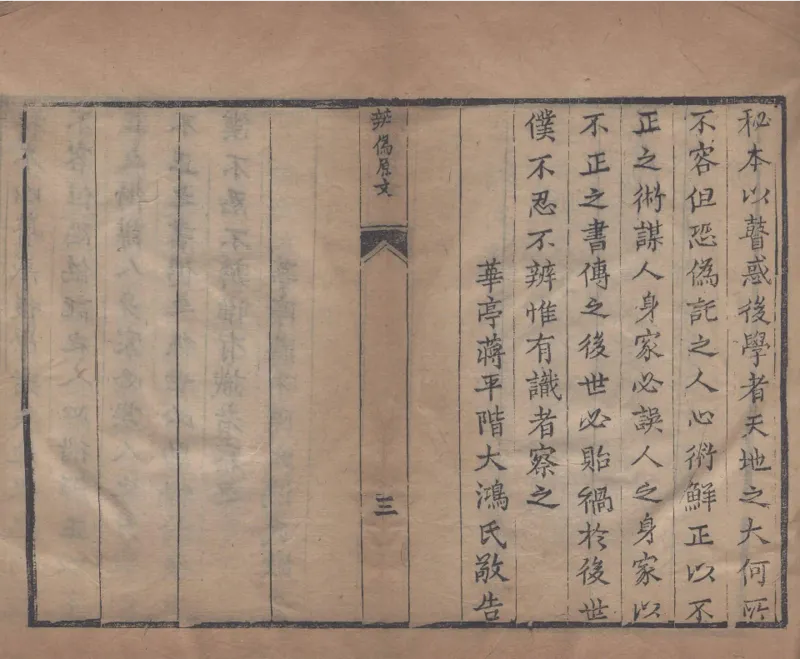 秘本以瞽惑後學者天地之大何所
不容但恐偽託之人心術鮮正以不
正之術謀人身家必誤人之身家以
不正之書傳之後世必貽禍於後世
僕不忍不辨惟有識者察之
華亭蔣平階大鴻氏敬告
辨偽原文
三